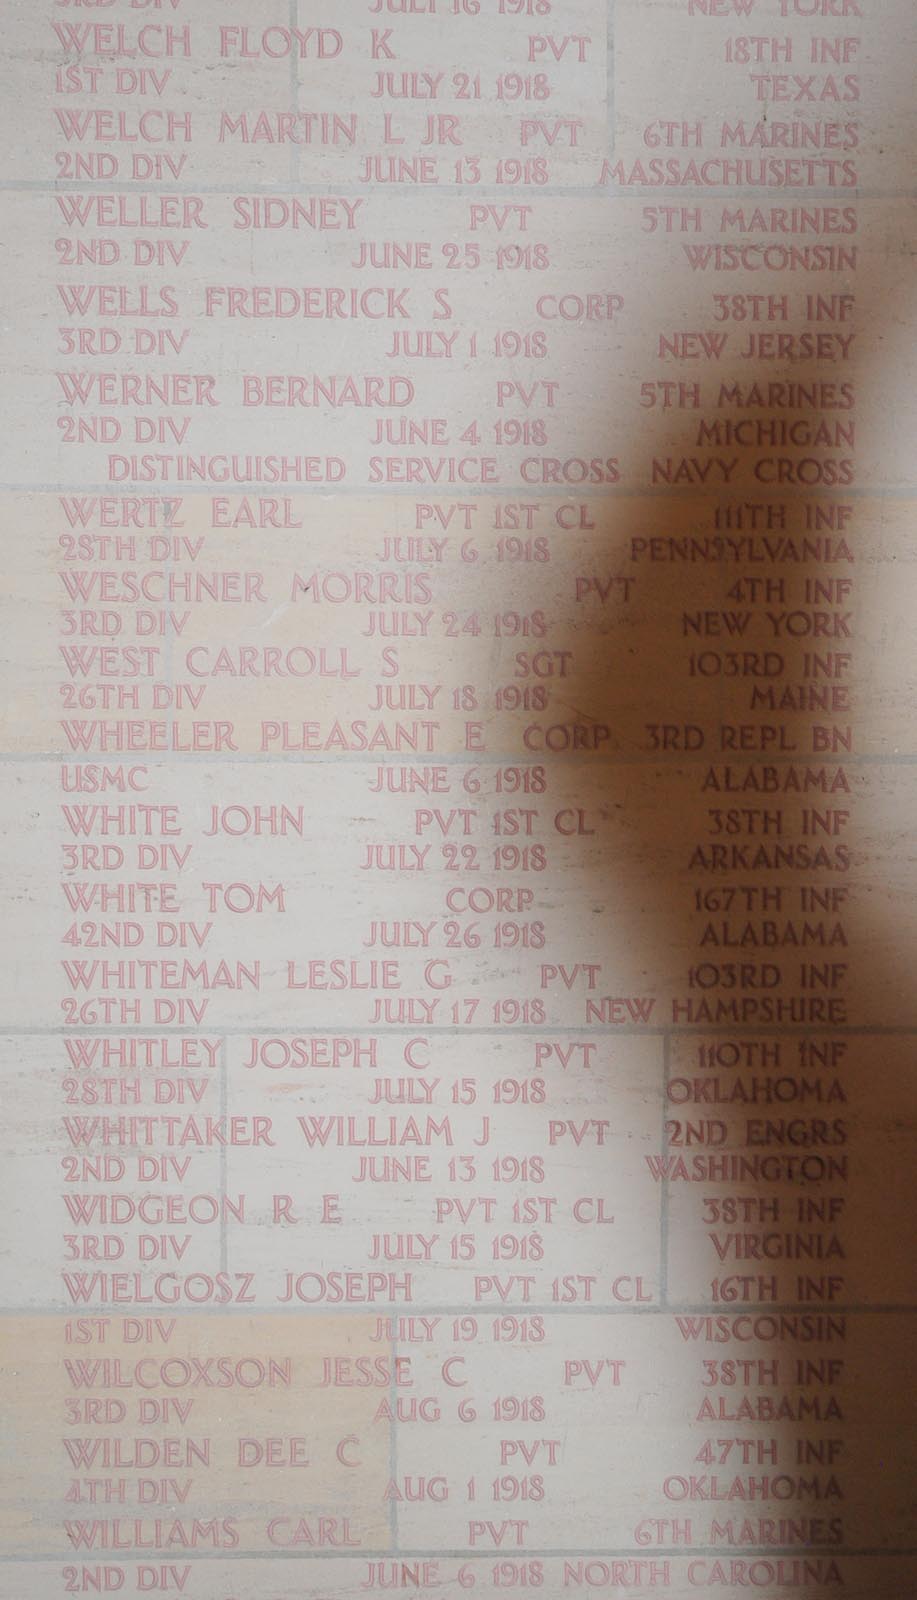 3RD DIV JULY 16 1918 NEW YORK
WELCH FLOYD K PVT 18TH INF
1ST DIV JULY 21 1918 TEXAS
WELCH MARTIN L JR PVT 6TH MARINES
2ND DIV JUNE 13 1918 MASSACHUSETTS
WELLER SIDNEY PVT 5TH MARINES
2ND DIV JUNE 25 1918 WISCONSIN
WELLS FREDERICK S CORP 38TH INF
3RD DIV JULY 1 1918 NEW JERSEY
WERNER BERNARD PVT 5TH MARINES
2ND DIV JUNE 4 1918 MICHIGAN
DISTINGUISHED SERVICE CROSS NAVY CROSS
WERTZ EARL PVT 1ST CL 111TH INF
28TH DIV JULY 6 1918 PENNSYLVANIA
WESCHNER MORRIS PVT 4TH INF
3RD DIV JULY 24 1918 NEW YORK
WEST CARROLL S SGT 103RD INF
26TH DIV JULY 18 1918 MAINE
WHEELER PLEASANT E CORP 3RD REPL BN
USMC JUNE 6 1918 ALABAMA
WHITE JOHN PVT 1ST CL 38TH INF
3RD DIV JULY 22 1918 ARKANSAS
WHITE TOM CORP 167TH INF
42ND DIV JULY 26 1918 ALABAMA
WHITEMAN LESLIE G PVT 103RD INF
26TH DIV JULY 17 1918 NEW HAMPSHIRE
WHITLEY JOSEPH C PVT 110TH INF
28TH DIV JULY 15 1918 OKLAHOMA
WHITTAKER WILLIAM J PVT 2ND ENGRS
2ND DIV JUNE 13 1918 WASHINGTON
WIDGEON R E PVT 1ST CL 38TH INF
3RD DIV JULY 15 1918 VIRGINIA
WIELGOSZ JOSEPH PVT 1ST CL 16TH INF
1ST DIV JULY 19 1918 WISCONSIN
WILCOXSON JESSE C PVT 38TH INF
3RD DIV AUG 6 1918 ALABAMA
WILDEN DEE C PVT 47TH INF
4TH DIV AUG 1 1918 OKLAHOMA
WILLIAMS CARL PVT 6TH MARINES
2ND DIV JUNE 6 1918 NORTH CAROLINA